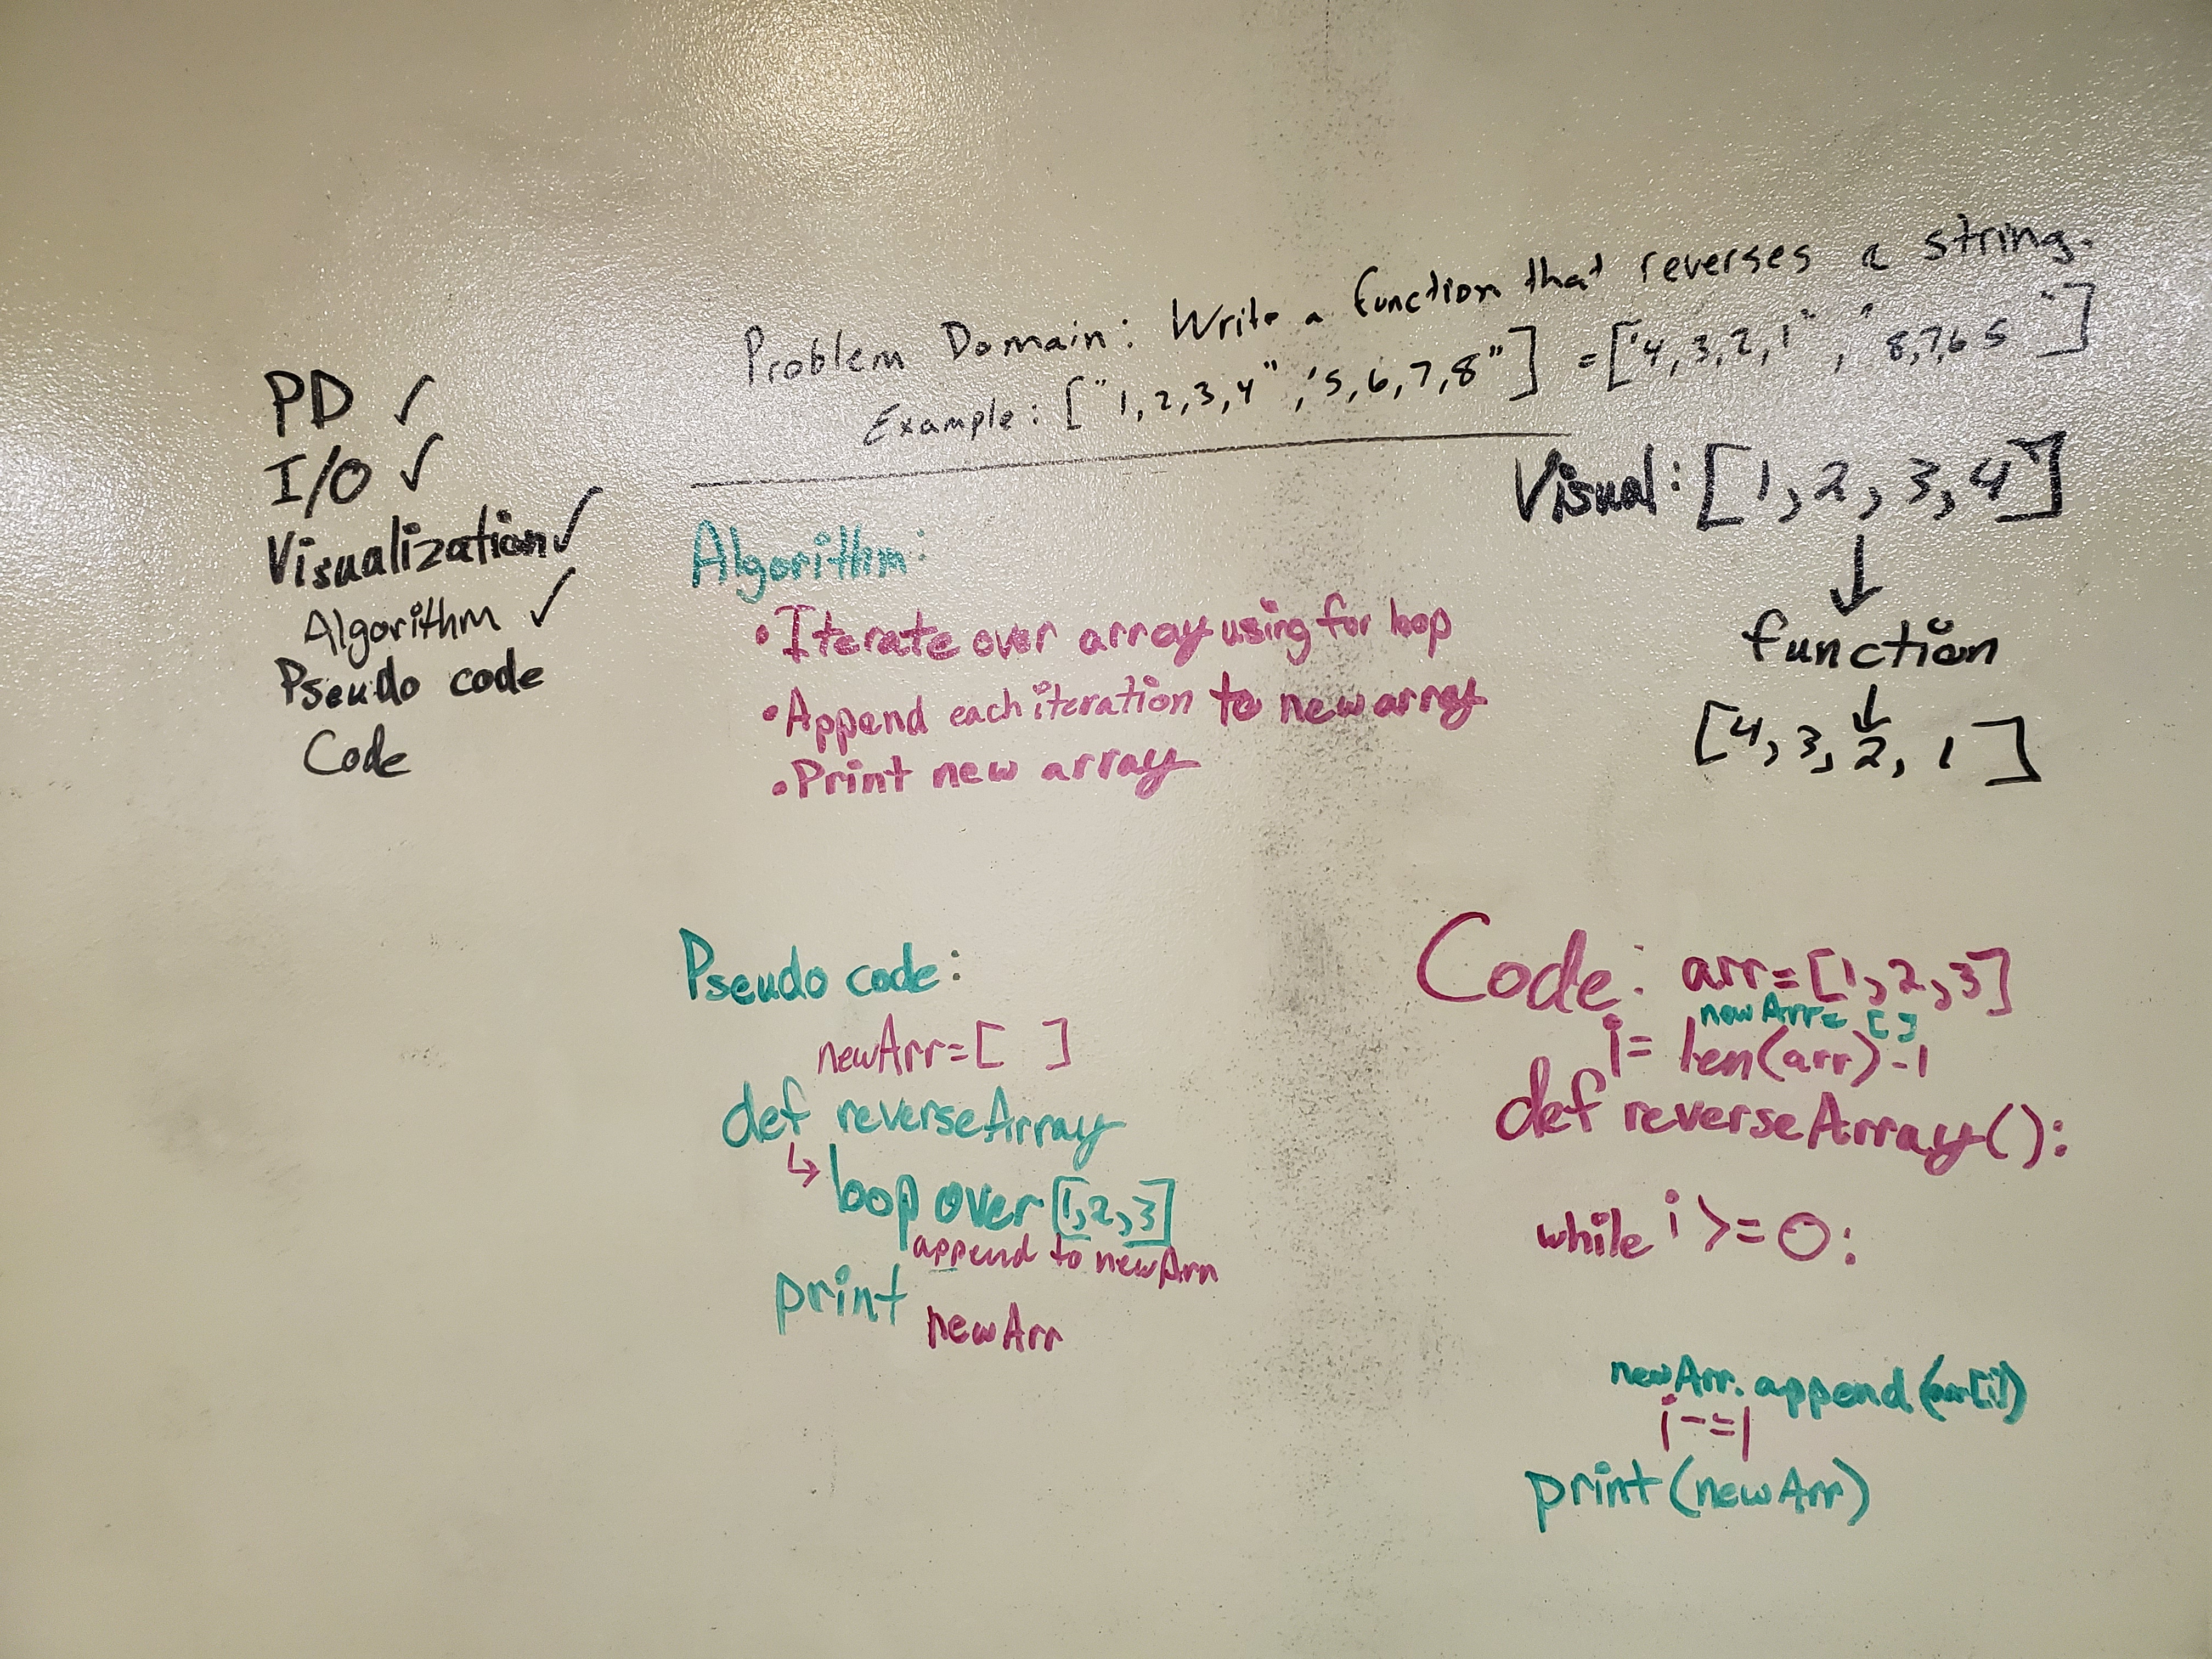 Problem Domain: Write a function that reverses a string.
Example: ["1,2,3,4", '5,6,7,8"] = ["4,3,2,1", "8,7,6 5"]
PD ✓
I/O ✓
Visualization ✓
Algorithm ✓
Pseudo code
Code
Algorithm:
• Iterate over array using for loop
• Append each iteration to new array
• Print new array
Visual: [1, 2, 3, 4]
↓
function
↓
[4, 3, 2, 1]
Pseudo code:
newArr = [ ]
def reverseArray
↳ loop over [1,2,3]
append to newArr
print
newArr
Code: arr = [1,2,3]
newArr = []
i = len(arr) -1
def reverseArray():
while i >= 0:
newArr.append(arr[i])
i -= 1
print(newArr)